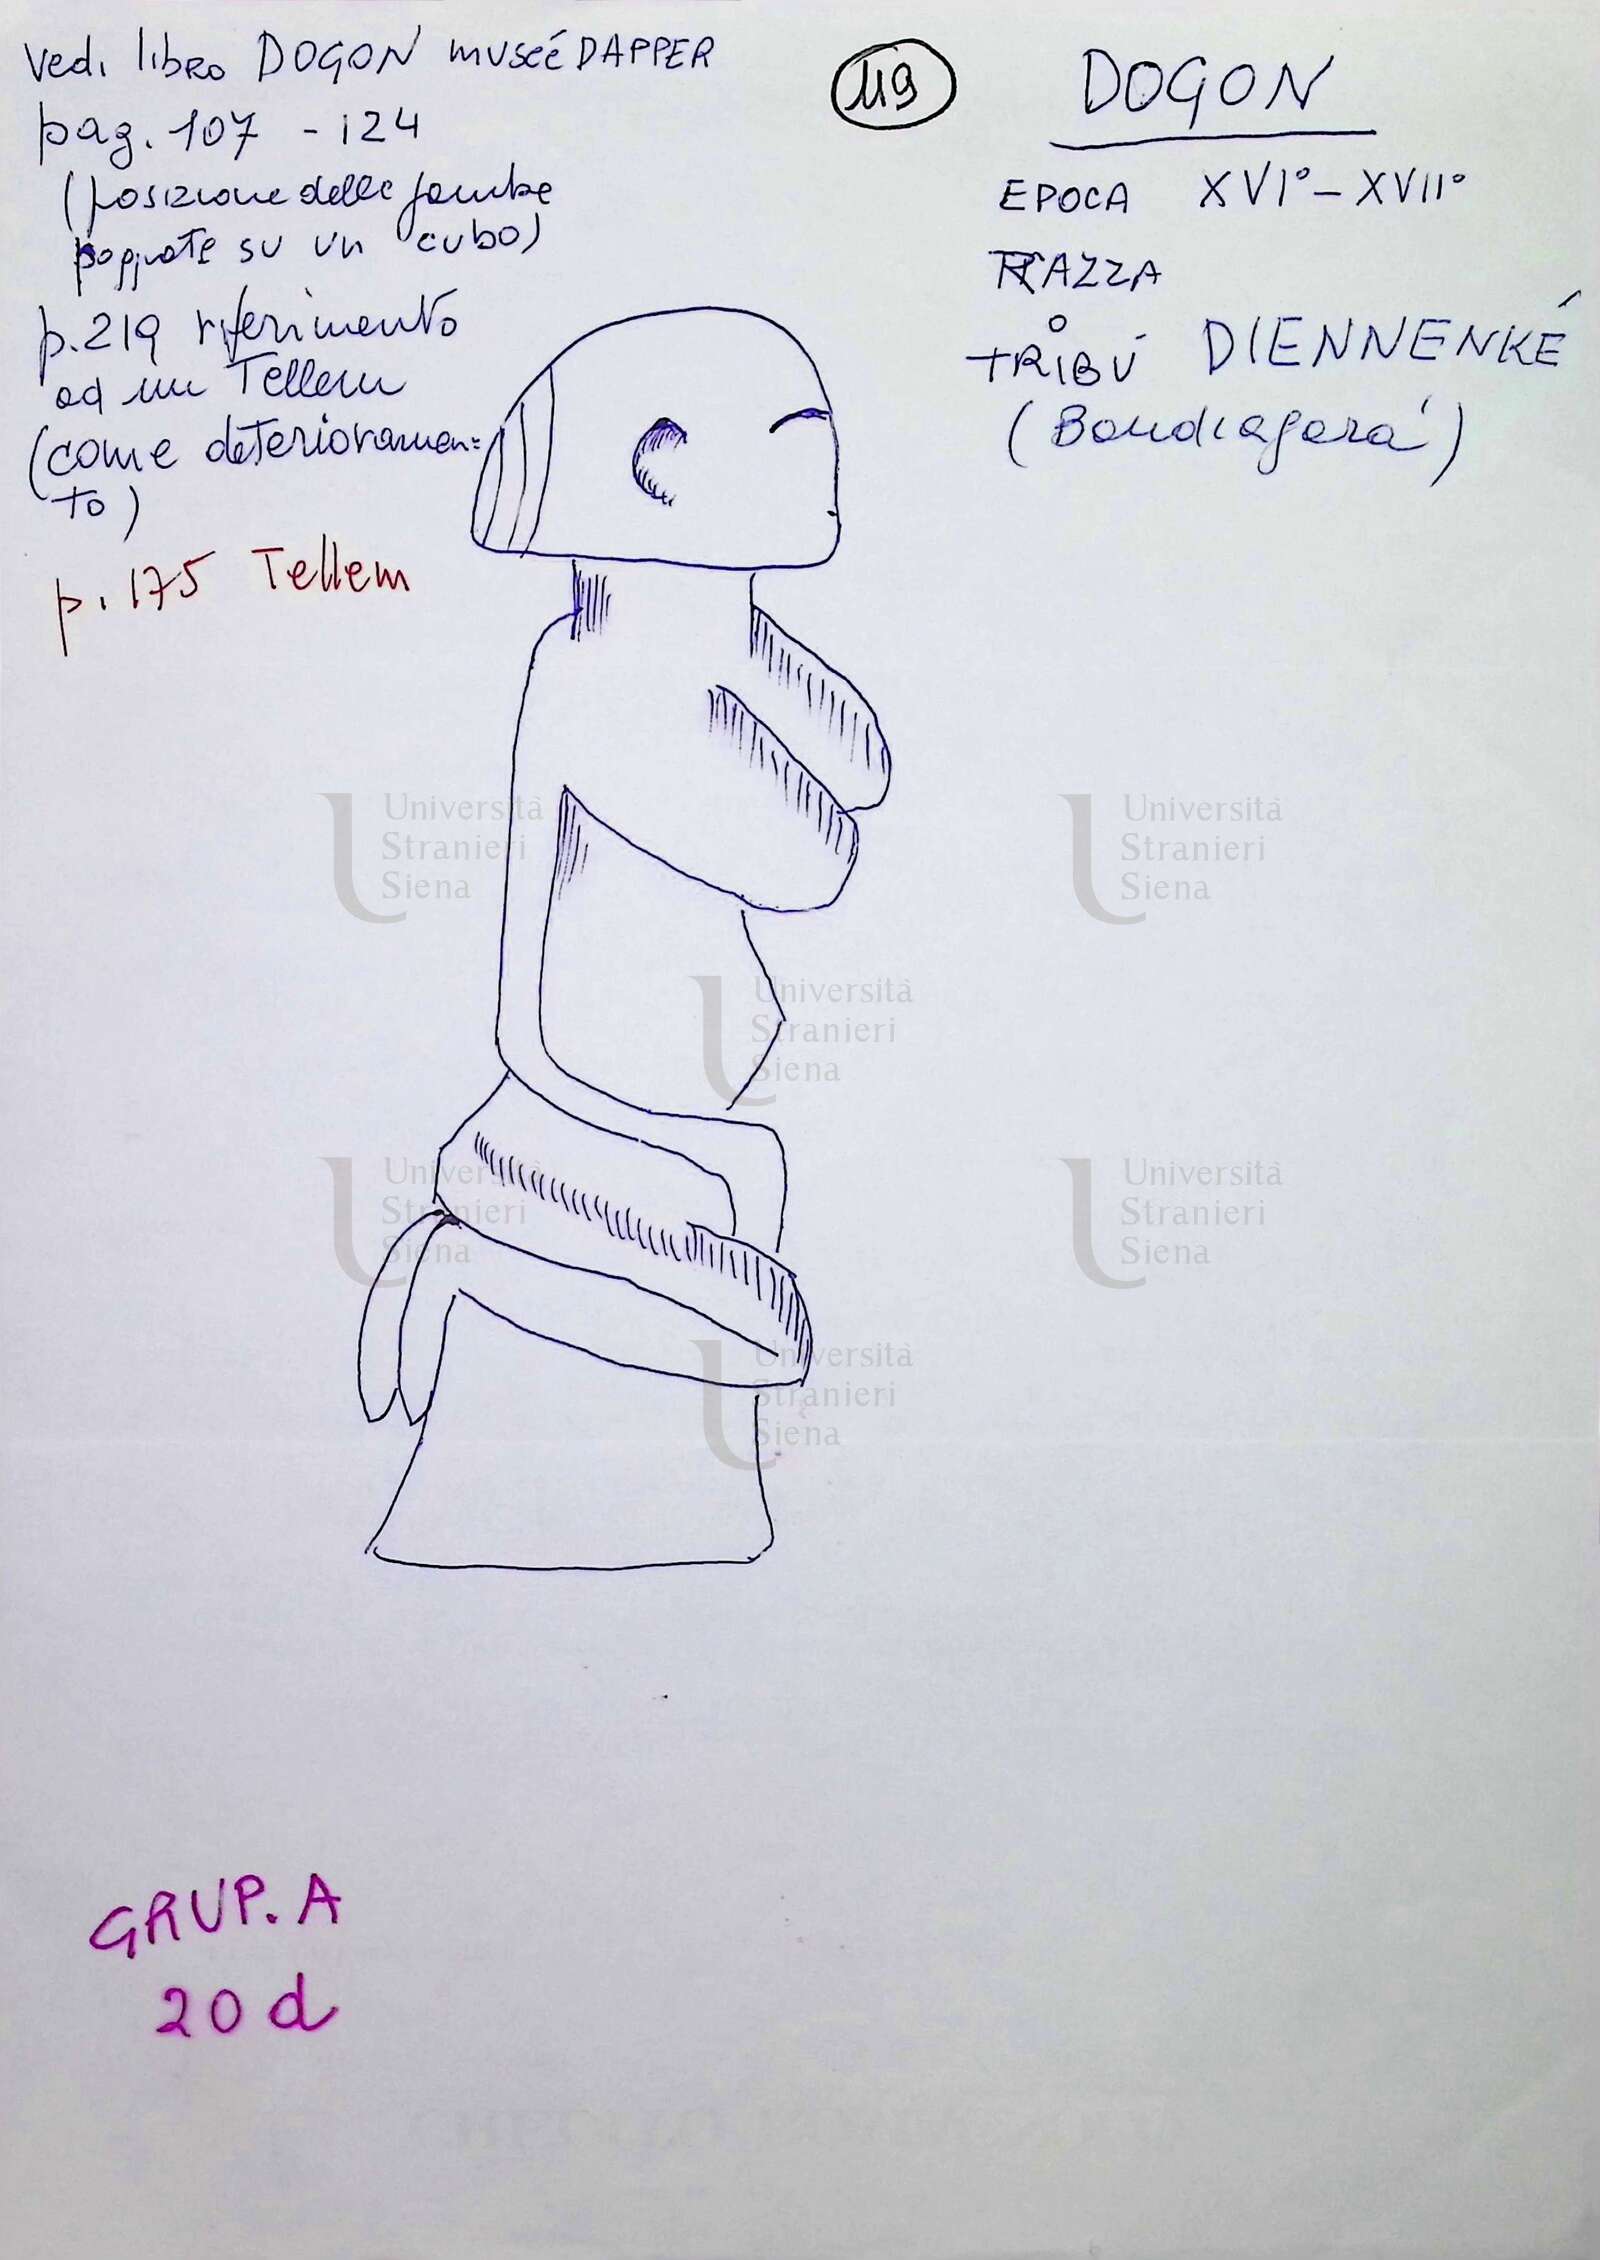 Vedi libro DOGON museé DAPPER
pag. 107 - 124
(posizione delle gambe
poggiate su un cubo)
p. 219 riferimento
ad un Tellem
(come deterioramen=
to)
p. 175 Tellem
119
DOGON
EPOCA XVI° - XVII°
RAZZA
o
TRIBÚ DIENNENKÉ
(Bandiagará)
Università
Stranieri
Siena
Università
Stranieri
Siena
Università
Stranieri
Siena
Università
Stranieri
Siena
Università
Stranieri
Siena
Università
Stranieri
Siena
GRUP. A
20 d